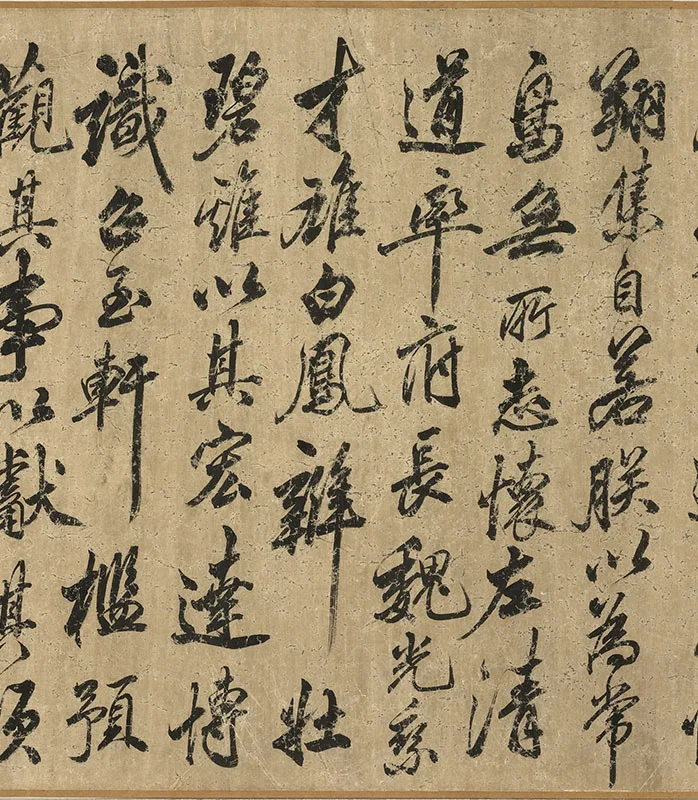 翔集自若朕以為常
鳥無所志懷左清
道率府長魏光乘
才雄白鳳辯壯
碧雞以其宏達博
識召至軒檻預
觀其事以獻其頌